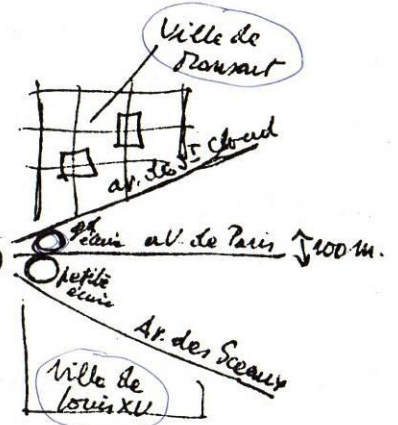 Ville de
Mansart
av. de St Cloud
gd
écurie
av. de Paris
100 m.
petite
écurie
Av. des Sceaux
Ville de
Louis XV